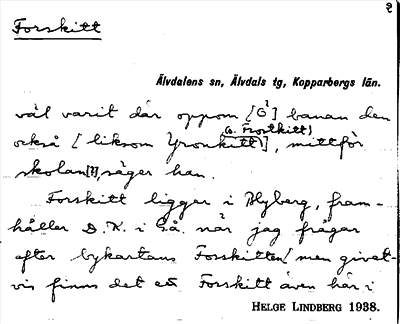 2
Forskitt
Älvdalens sn, Älvdals tg, Kopparbergs län.
väl varit där oppom [G¹] banan den
(o. Frostkitt)
också [liksom Yronskitt], mittför
skolan[?], säger han.
Forskitt ligger i Blyberg, fram-
håller D.K. i Gå. när jag frågar
efter bykartans Forskitten [men givet-
vis finns det ett Forskitt även här i
HELGE LINDBERG 1938.